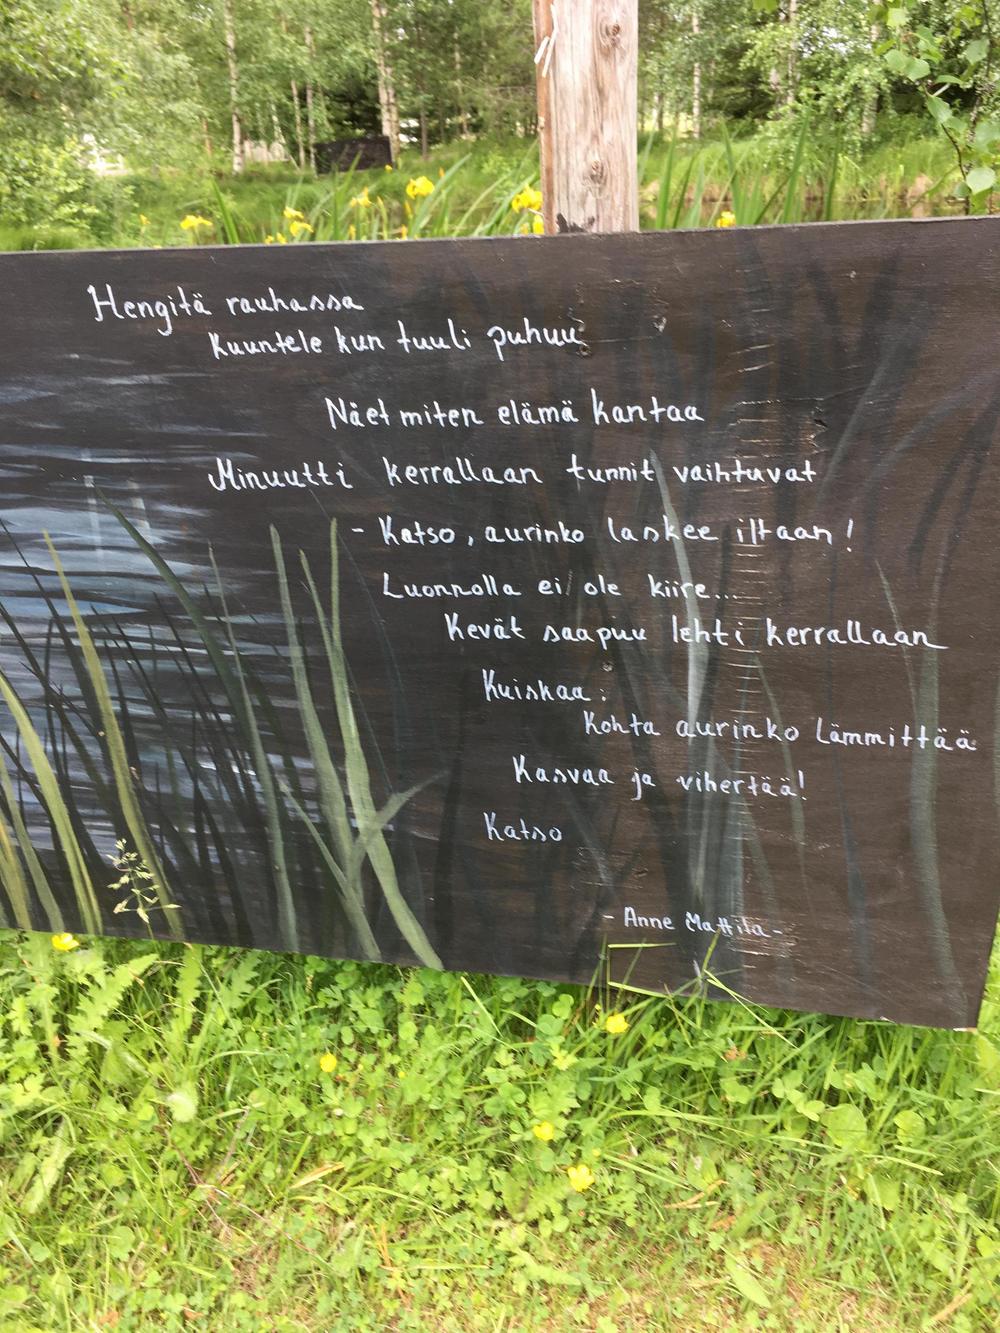 Hengitä rauhassa
Kuuntele kun tuuli puhuu
Näet miten elämä kantaa
Minuutti kerrallaan tunnit vaihtuvat
- Katso, aurinko laskee iltaan!
Luonnolla ei ole kiire...
Kevät saapuu lehti kerrallaan
Kuiskaa:
Kohta aurinko lämmittää
Kasvaa ja vihertää!
Katso
- Anne Mattila -